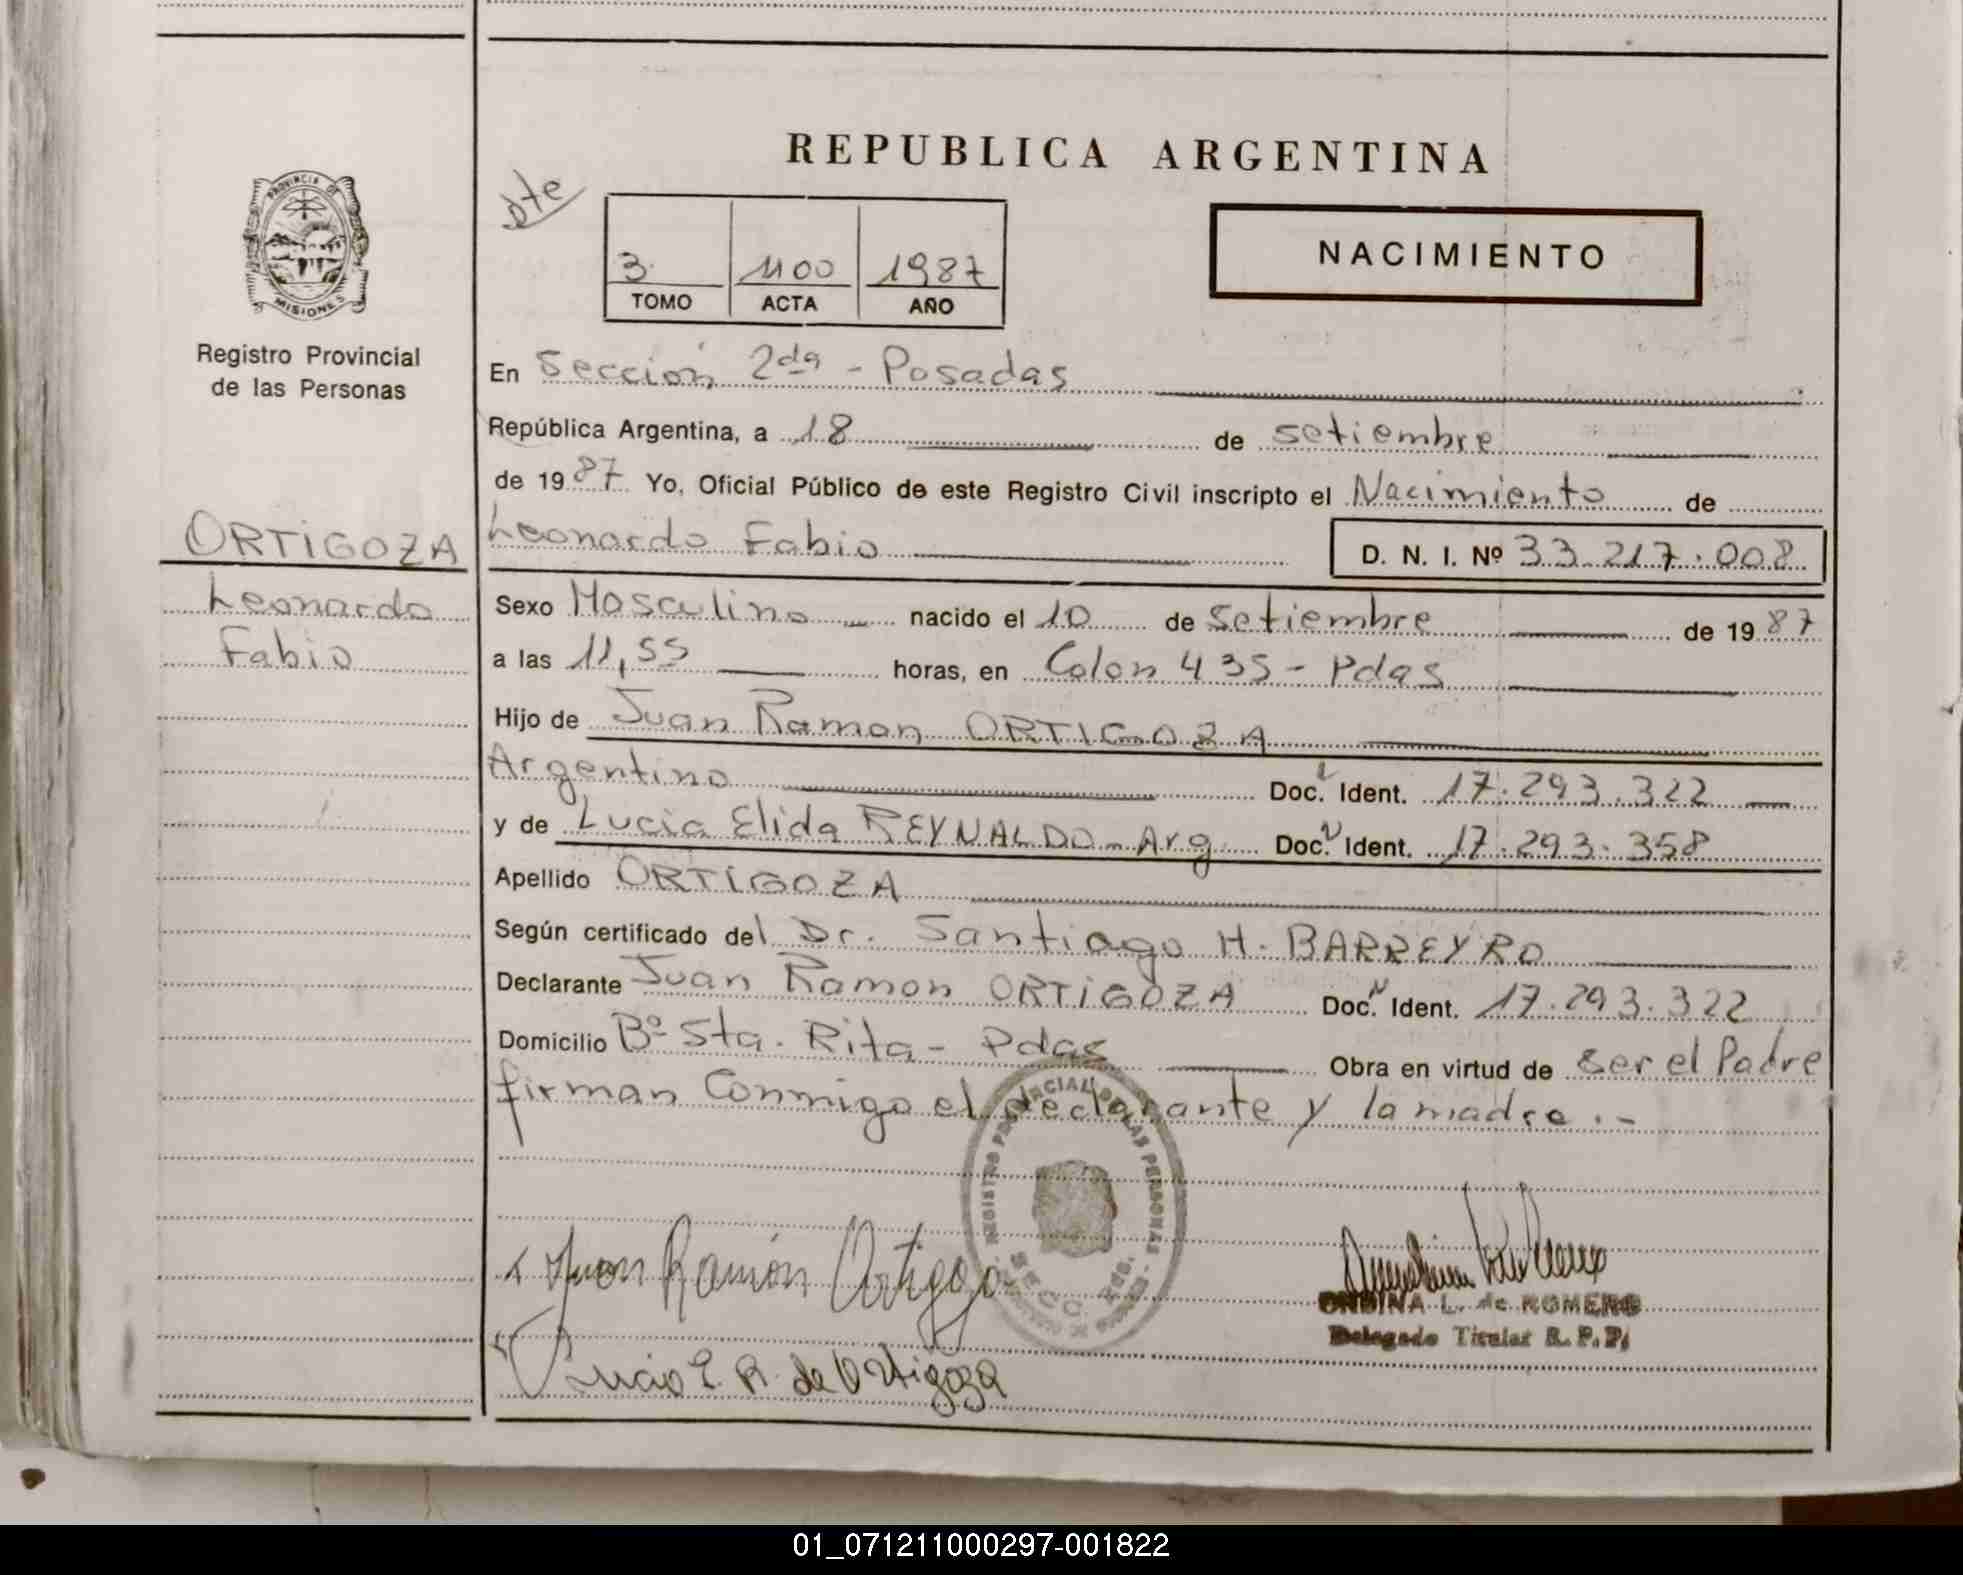 REPUBLICA ARGENTINA
PROVINCIA DE
MISIONES
Registro Provincial
de las Personas
dte
3 1100 1987
TOMO ACTA AÑO
NACIMIENTO
En Sección 2da - Posadas
República Argentina, a 18 de setiembre
de 1987 Yo, Oficial Público de este Registro Civil inscripto el Nacimiento de
ORTIGOZA
Leonardo Fabio
D. N. I. Nº 33.217.008
Leonardo
Fabio
Sexo Masculino nacido el 10 de setiembre de 1987
a las 11,55 horas, en Colon 435 - Pdas
Hijo de Juan Ramon ORTIGOZA
Argentino Doc. Ident. 17.293.322
y de Lucia Elida REYNALDO - Arg Doc. Ident. 17.293.358
Apellido ORTIGOZA
Según certificado del Dr. Santiago H. BARREYRO
Declarante Juan Ramon ORTIGOZA Doc. Ident. 17.293.322
Domicilio Bº Sta. Rita - Pdas Obra en virtud de ser el Padre
firman Conmigo el declarante y la madre.-
REGISTRO PROVINCIAL DE LAS PERSONAS
SECC. 2da.
Juan Ramón Ortigoza
ONDINA L. de ROMERO
Delegado Titular R. P. P.
Lucia E. R. de Ortigoza
01_071211000297-001822